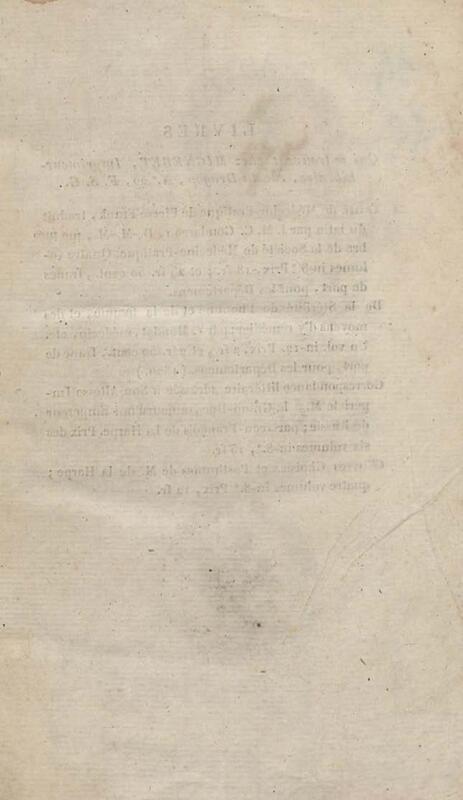 LIVRES
Qui se trouvent chez MIGNERET, Imprimeur-
Libraire, du Dragon, N.º 20, F. S. G.
de Médecine-Pratique de Pierre Frank, traduit
du latin par J. M. C. Goudareau, D.-M.-M., mem-
bre de la Société de Médecine-Pratique. Quatre vo-
lumes in-8.º; Prix, 18 fr.; et 23 fr. 50 cent., francs
de port, pour les Départemens.
De la Stérilité de l'homme et de la femme, et des
moyens d'y remédier; médecin, etc.
Un vol. in-12. Prix, et 2 fr. cent. franc de
port, pour les Départemens.
Correspondance littéraire adressée à Son Altesse Im-
périale M.gr le Grand-Duc, aujourd'hui Empereur
de Russie; par Jean-François de la Harpe. Prix des
six volumes in-8.º,
Œuvres Choisies et Posthumes de M. de la Harpe;
quatre volumes in-8.º Prix, fr.